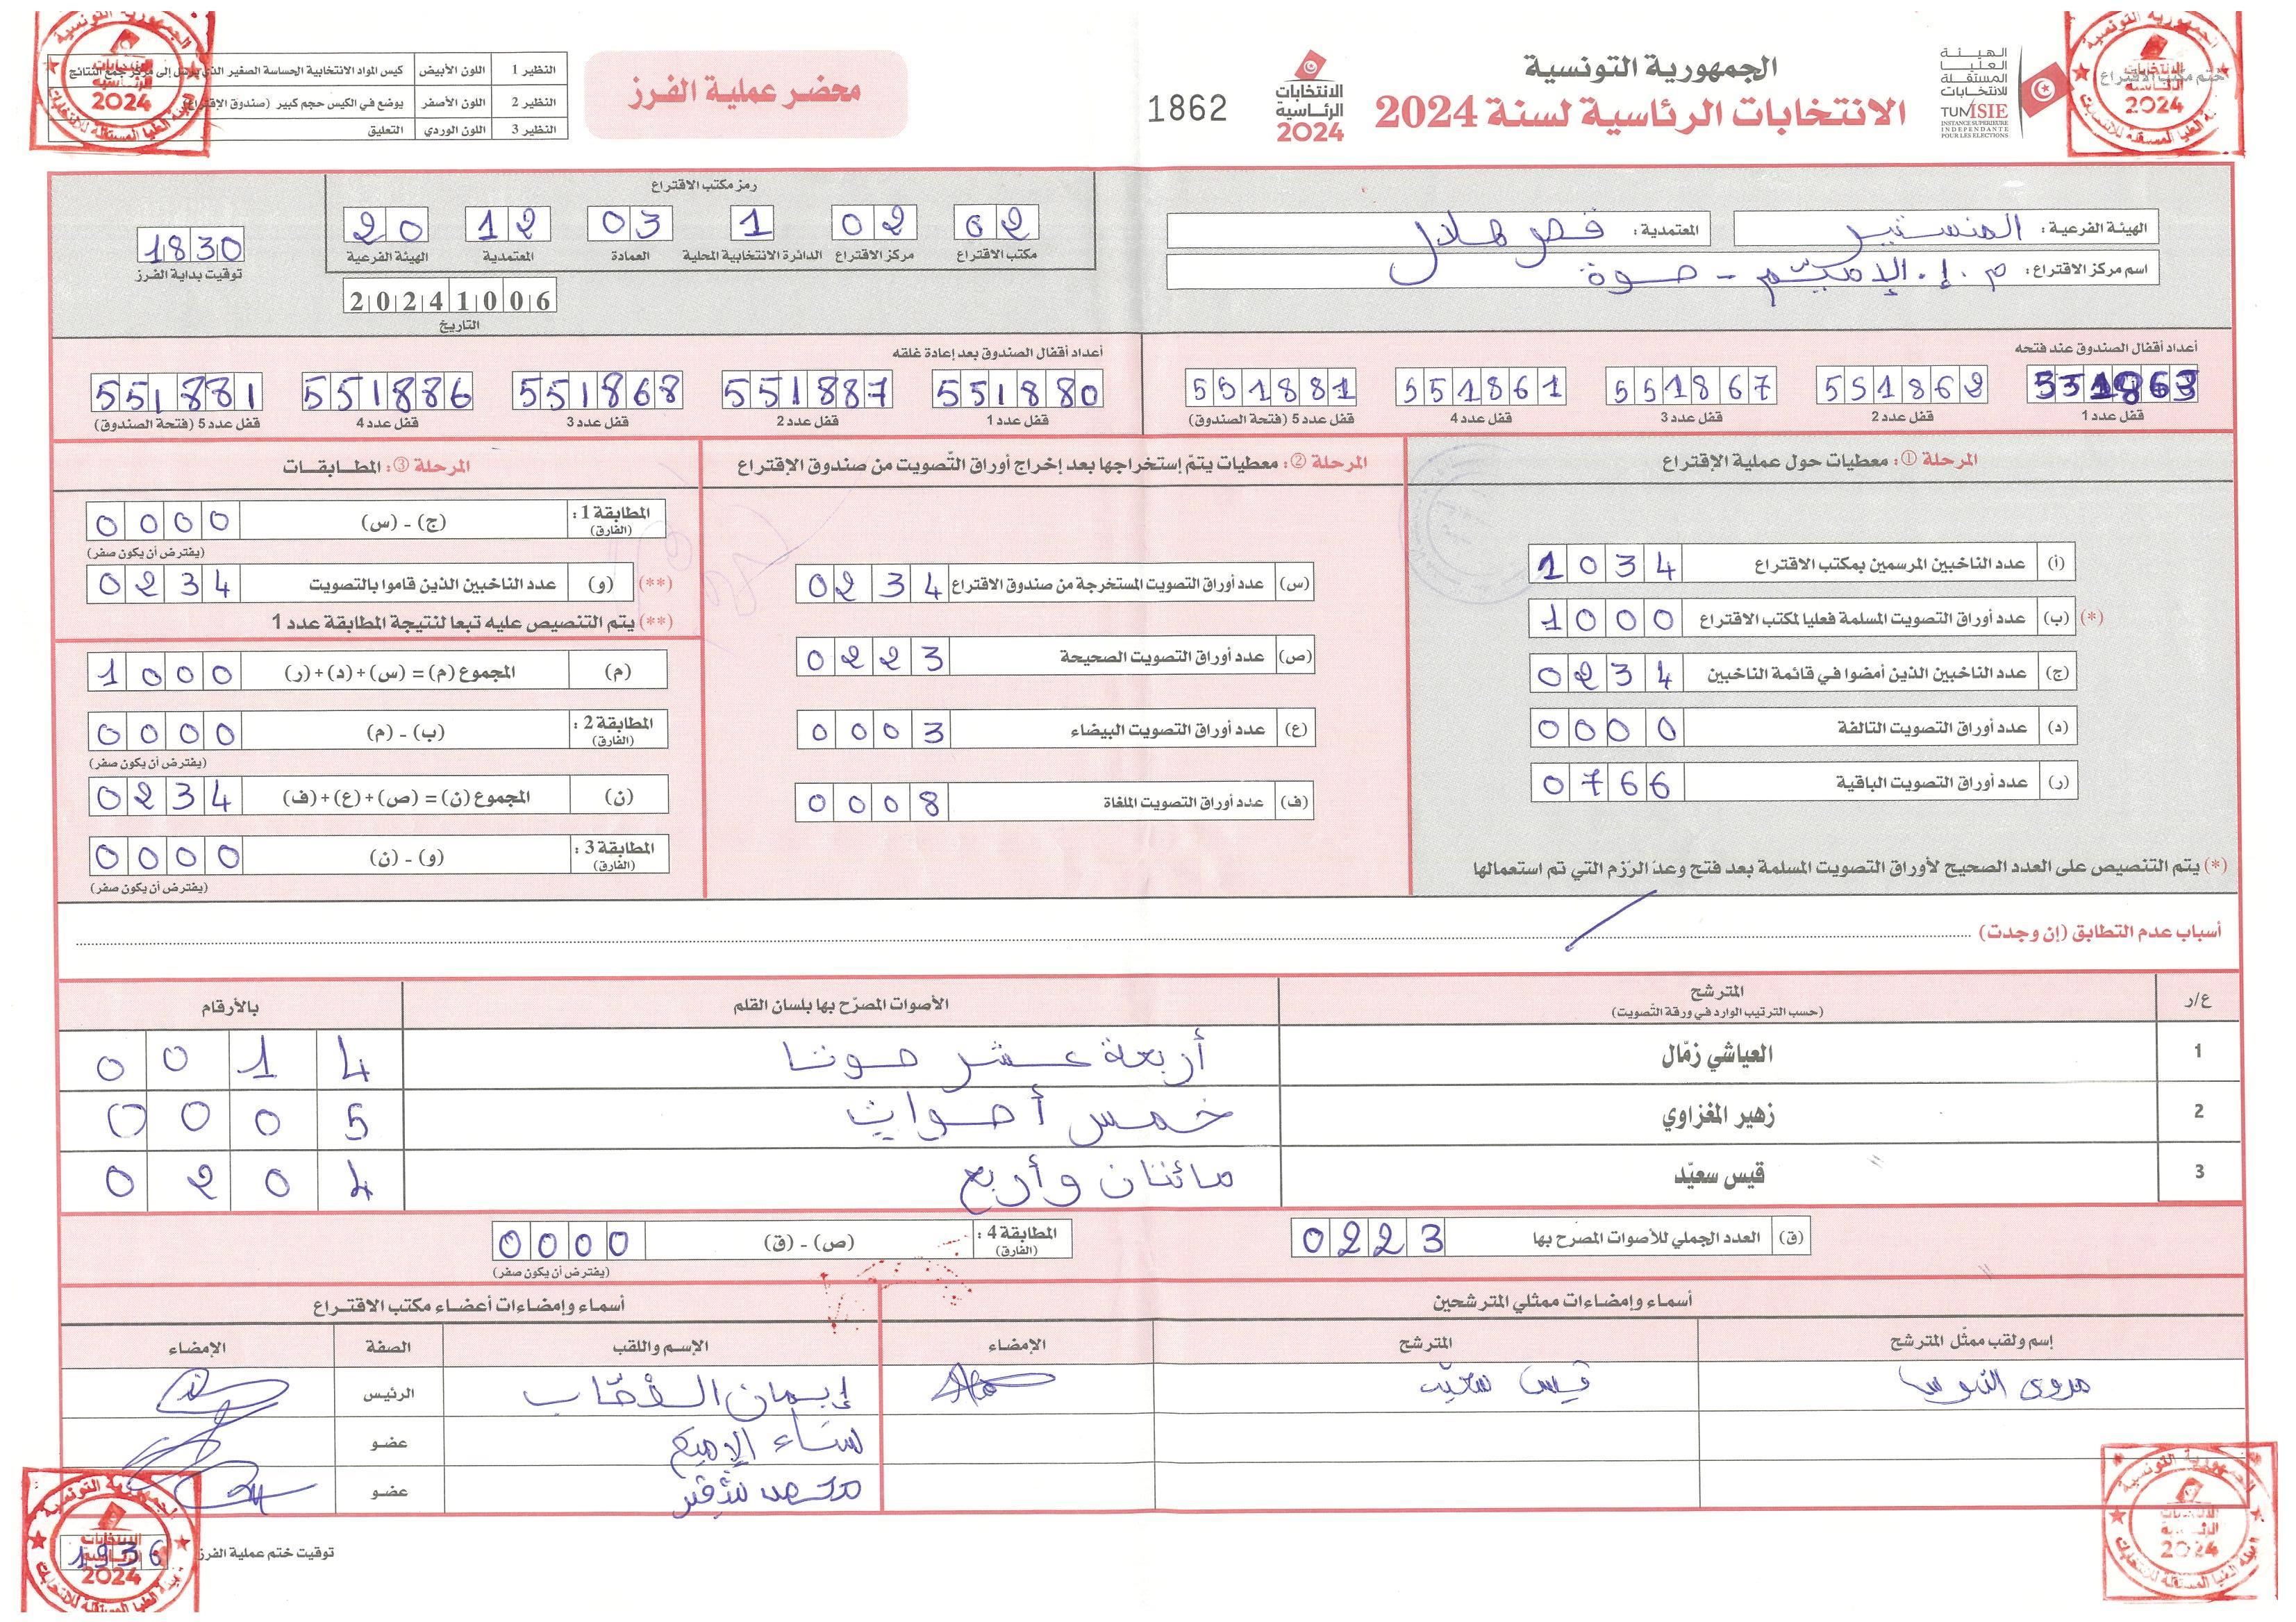 الجمهورية التونسية
الانتخابات الرئاسية لسنة 2024
الهيئة
العليا
المستقلة
للانتخابات
TUNISIE
INSTANCE SUPERIEURE
INDEPENDANTE
POUR LES ELECTIONS
ختم مكتب الاقتراع
الانتخابات
الرئاسية
2024
1862
محضر عملية الفرز
النظير 1 اللون الأبيض كيس المواد الانتخابية الحساسة الصغير الذي يرسل إلى مركز جمع النتائج
النظير 2 اللون الأصفر يوضع في الكيس حجم كبير (صندوق الإقتراع)
النظير 3 اللون الوردي التعليق
الهيئة الفرعية: المنستير المعتمدية: قصر هلال
اسم مركز الاقتراع: م.إ.
رمز مكتب الاقتراع
02 02 1 03 12 20
مكتب الاقتراع مركز الاقتراع الدائرة الانتخابية المحلية العمادة المعتمدية الهيئة الفرعية
20241006
التاريخ
1830
توقيت بداية الفرز
أعداد أقفال الصندوق عند فتحه
551863 551862 551867 551861 551881
قفل عدد 1 قفل عدد 2 قفل عدد 3 قفل عدد 4 قفل عدد 5 (فتحة الصندوق)
أعداد أقفال الصندوق بعد إعادة غلقه
551880 551887 551868 551886 551881
قفل عدد 1 قفل عدد 2 قفل عدد 3 قفل عدد 4 قفل عدد 5 (فتحة الصندوق)
المرحلة ①: معطيات حول عملية الإقتراع
(أ) عدد الناخبين المرسمين بمكتب الاقتراع 1034
(*) (ب) عدد أوراق التصويت المسلمة فعليا لمكتب الاقتراع 1000
(ج) عدد الناخبين الذين أمضوا في قائمة الناخبين 0234
(د) عدد أوراق التصويت التالفة 0000
(ر) عدد أوراق التصويت الباقية 0766
(*) يتم التنصيص على العدد الصحيح لأوراق التصويت المسلمة بعد فتح وعدّ الرّزم التي تم استعمالها
المرحلة ②: معطيات يتمّ إستخراجها بعد إخراج أوراق التّصويت من صندوق الإقتراع
(س) عدد أوراق التصويت المستخرجة من صندوق الاقتراع 0234
(ص) عدد أوراق التصويت الصحيحة 0223
(ع) عدد أوراق التصويت البيضاء 0003
(ف) عدد أوراق التصويت الملغاة 0008
المرحلة ③: المطابقات
المطابقة 1: (الفارق) (ج) - (س) 0000
(يفترض أن يكون صفر)
(**) (و) عدد الناخبين الذين قاموا بالتصويت 0234
(**) يتم التنصيص عليه تبعا لنتيجة المطابقة عدد 1
(م) المجموع (م) = (س)+(د)+(ر) 1000
المطابقة 2: (الفارق) (ب) - (م) 0000
(يفترض أن يكون صفر)
(ن) المجموع (ن) = (ص)+(ع)+(ف) 0234
المطابقة 3: (الفارق) (و) - (ن) 0000
(يفترض أن يكون صفر)
أسباب عدم التطابق (إن وجدت)
ع/ر المترشح (حسب الترتيب الوارد في ورقة التصويت) الأصوات المصرّح بها بلسان القلم بالأرقام
1 العياشي زمّال أربعة عشر صوتا 0014
2 زهير المغزاوي خمس أصوات 0005
3 قيس سعيّد مائتان وأربع 0204
(ق) العدد الجملي للأصوات المصرح بها 0223
المطابقة 4: (الفارق) (ص) - (ق) 0000
(يفترض أن يكون صفر)
أسماء وإمضاءات ممثلي المترشحين
إسم ولقب ممثّل المترشح المترشح الإمضاء
مروى قيس سعيد
أسماء وإمضاءات أعضاء مكتب الاقتراع
الإسم واللقب الصفة الإمضاء
إيمان الرئيس
عضو
عضو
توقيت ختم عملية الفرز 1936